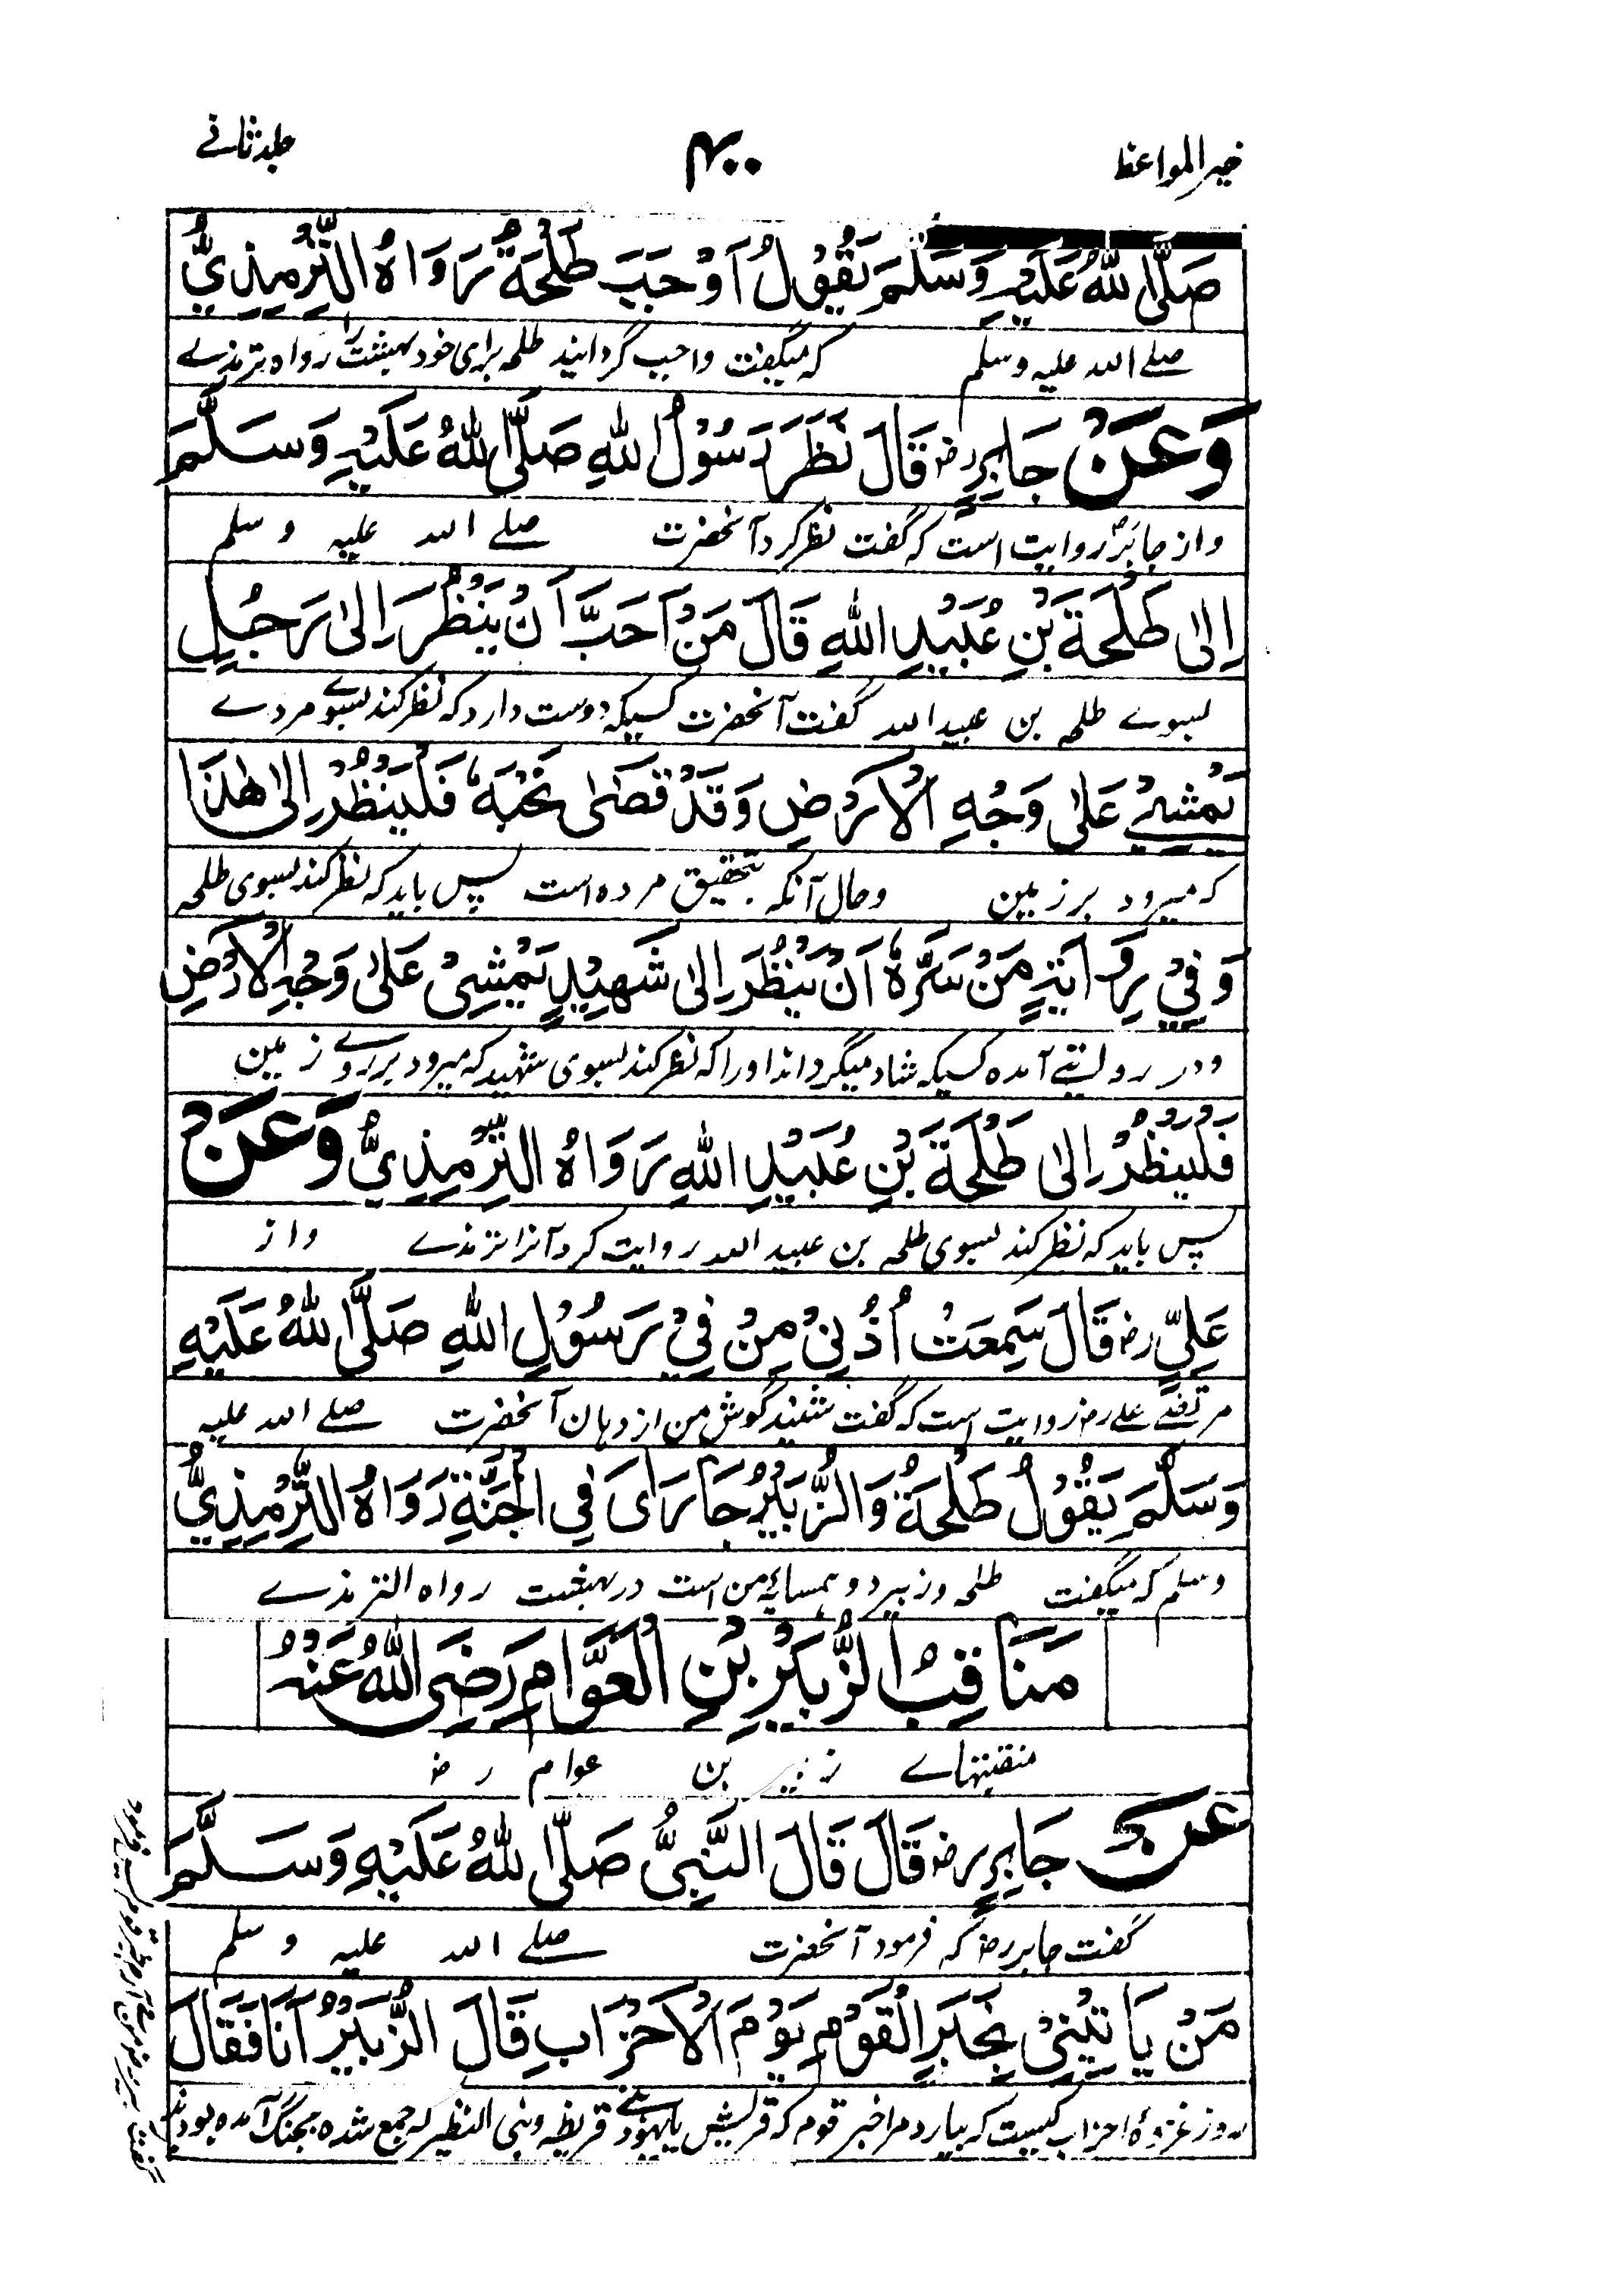 خیر المواعظ
۴۰۰
جلد ثانے
صَلَّى اللهُ عَلَيْهِ وَسَلَّمَ يَقُوْلُ اَوْجَبَ طَلْحَةُ رَوَاهُ التِّرْمِذِيُّ
صلے اللہ علیہ وسلم کہ میگفت واجب گردانید طلحہ برای خود بہشت را رواہ ترمذے
وَعَنْ جَابِرٍ رض قَالَ نَظَرَ رَسُوْلُ اللهِ صَلَّى اللهُ عَلَيْهِ وَسَلَّمَ
و از جابرؓ روایت است کہ گفت نظر کرد آنحضرت صلے اللہ علیہ و سلم
اِلٰى طَلْحَةَ بْنِ عُبَيْدِ اللهِ قَالَ مَنْ اَحَبَّ اَنْ يَنْظُرَ اِلٰى رَجُلٍ
بسوے طلحہ بن عبید اللہ گفت آنحضرت کسیکہ دوست دارد کہ نظر کند بسوے مردے
يَمْشِيْ عَلٰى وَجْهِ الْاَرْضِ وَقَدْ قَضٰى نَحْبَهٗ فَلْيَنْظُرْ اِلٰى هٰذَا
کہ میرود بر زمین وحال آنکہ بتحقیق مردہ است پس باید کہ نظر کند بسوی طلحہ
وَفِيْ رِوَايَةٍ مَنْ سَرَّهٗ اَنْ يَنْظُرَ اِلٰى شَهِيْدٍ يَمْشِيْ عَلٰى وَجْهِ الْاَرْضِ
ودر روایتے آمدہ کسیکہ شاد میگرداند اورا کہ نظر کند بسوی شہید کہ میرود بر روے زمین
فَلْيَنْظُرْ اِلٰى طَلْحَةَ بْنِ عُبَيْدِ اللهِ رَوَاهُ التِّرْمِذِيُّ وَعَنْ
پس باید کہ نظر کند بسوی طلحہ بن عبید اللہ روایت کرد آنرا ترمذے و از
عَلِيٍّ رض قَالَ سَمِعَتْ اُذُنِيْ مِنْ فِيْ رَسُوْلِ اللهِ صَلَّى اللهُ عَلَيْهِ
مرتضے علے رض روایت است کہ گفت شنید گوش من از دہان آنحضرت صلے اللہ علیہ
وَسَلَّمَ يَقُوْلُ طَلْحَةُ وَالزُّبَيْرُ جَارَايَ فِي الْجَنَّةِ رَوَاهُ التِّرْمِذِيُّ
وسلم کہ میگفت طلحہ و زبیر دو ہمسایۂ من است در بہشت رواہ الترمذے
مَنَاقِبُ الزُّبَيْرِ بْنِ الْعَوَّامِ رَضِيَ اللهُ عَنْهُ
منقبتہاے زبیر بن عوام رض
عَنْ جَابِرٍ رض قَالَ قَالَ النَّبِيُّ صَلَّى اللهُ عَلَيْهِ وَسَلَّمَ
گفت جابر رض کہ فرمود آنحضرت صلے اللہ علیہ و سلم
مَنْ يَاْتِيْنِيْ بِخَبَرِ الْقَوْمِ يَوْمَ الْاَحْزَابِ قَالَ الزُّبَيْرُ اَنَا فَقَالَ
روز غزوۂ احزاب کیست کہ بیارد مرا خبر قوم کہ قریش یا یہود بنے قریظہ وبنی النظیر کہ جمع شدہ بجنگ آمدہ بودند